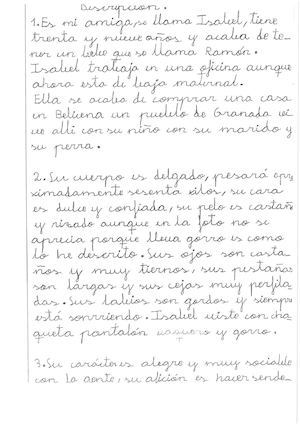 Descripción.
1. Es mi amiga, se llama Isabel, tiene
trenta y nueve años y acaba de te-
ner un bebe que se llama Ramón.
Isabel trabaja en una oficina aunque
ahora esta de baja maternal.
Ella se acaba de comprar una casa
en Belicena un pueblo de Granada vi
ve alli con su niño con su marido y
su perra.
2. Su cuerpo es delgado, pesará apro
ximadamente sesenta kilos, su cara
es dulce y confiada, su pelo es castaño
y rizado aunque en la foto no se
aprecia porque lleva gorro es como
lo he descrito. Sus ojos son casta-
ños y muy tiernos, sus pestañas
son largas y sus cejas muy perfila
das. Sus labios son gordos y siempre
está sonrriendo. Isabel viste con cha
queta pantalón vaquero y gorro.
3. Su carácter es alegre y muy sociable
con la gente, su afición es hacer sende-